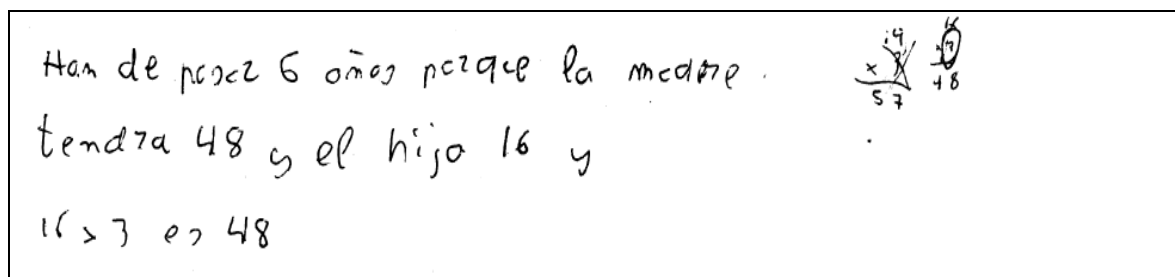 Han de pasar 6 años porque la madre.
tendra 48 y el hijo 16 y
16 x 3 es 48
19
x 3
57
16
x 3
48